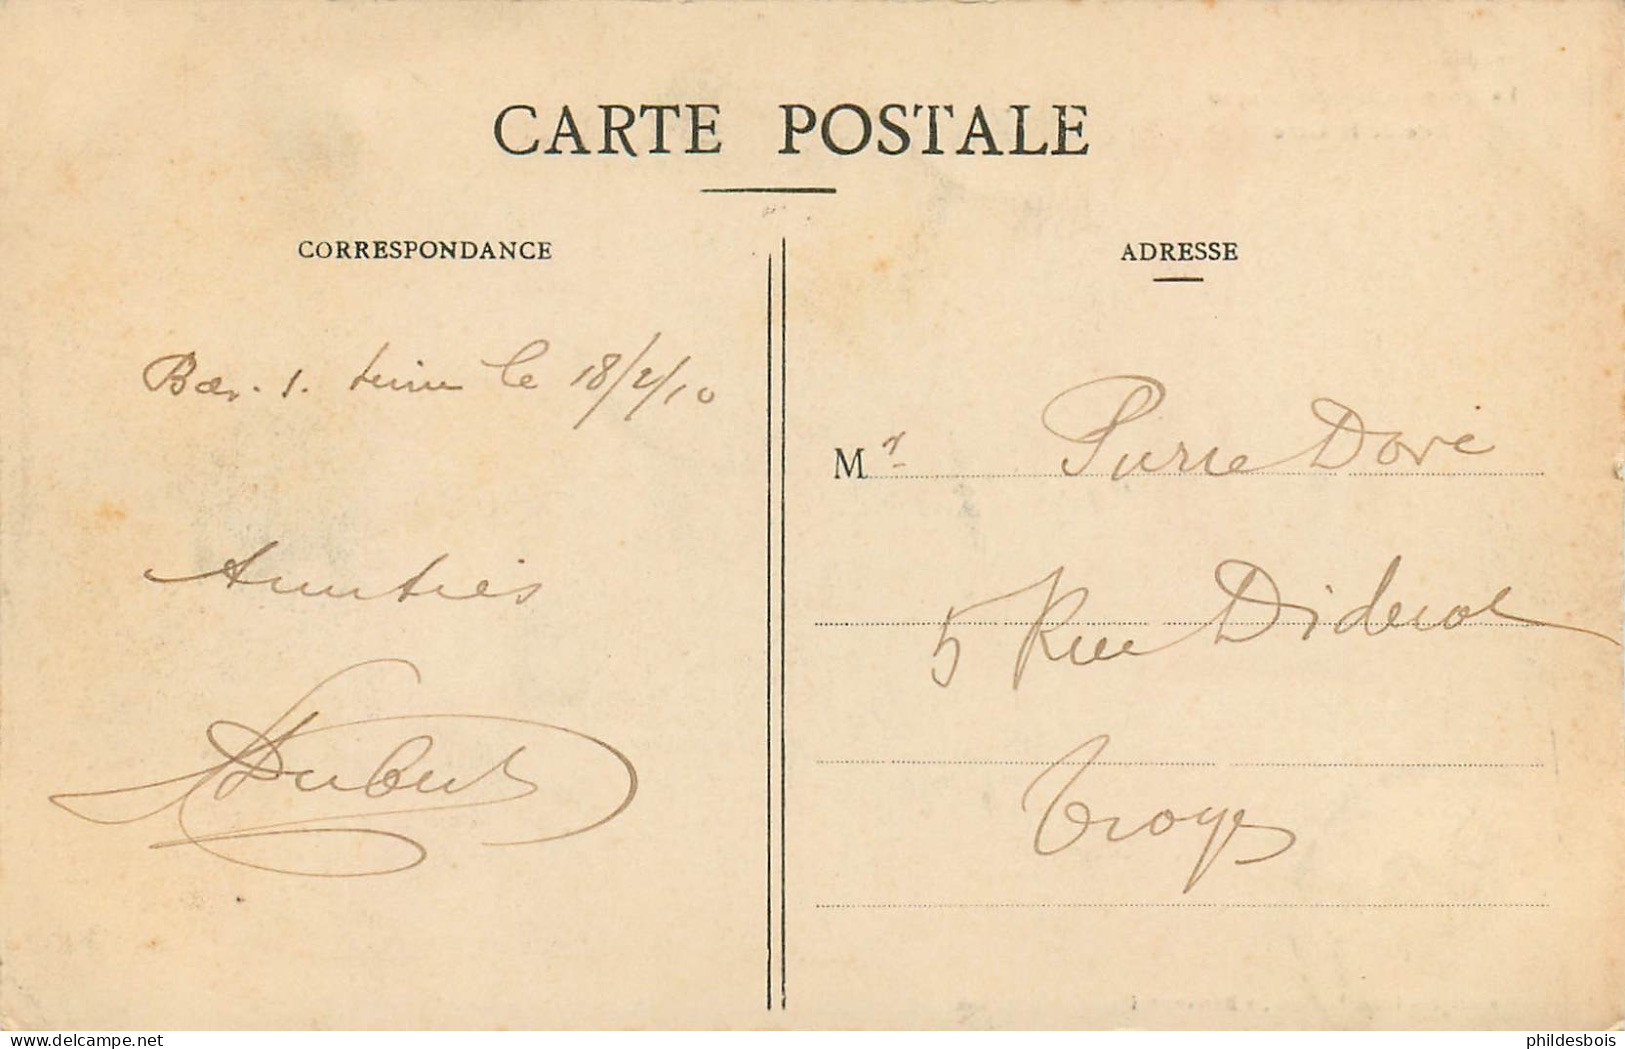 CARTE POSTALE
CORRESPONDANCE
Bar. s. Seine le 18/2/10
Amitiés
Dubut
ADRESSE
Mr Pierre Doré
5 Rue Diderot
Troyes
delcampe.net
phildesbois